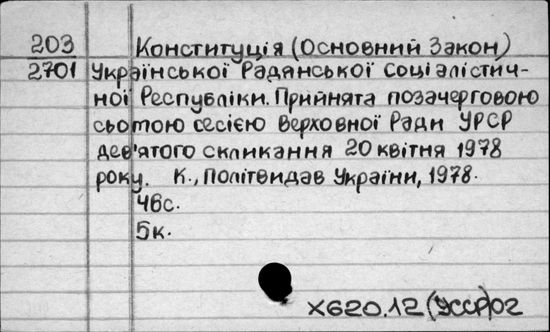 203 Конституція (Основний Закон)
2701 Української Радянської Соціалістич-
ної Республіки. Прийнята позачерговою
сьотою сесією Верховної Ради УРСР
дев'ятого скликання 20 квітня 1978
року. К., Політвидав України, 1978.
46с.
5к.
Х620.12(УССР)02